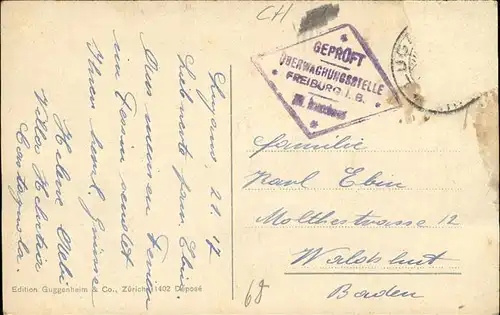 CH
GEPRÜFT
ÜBERWACHUNGSSTELLE
FREIBURG I. B.
LUG
Lugano, 21. 17
Liebwerte Fam. Ebin.
Aus meinen Ferien
im Tessin sendet
Ihnen herzl. Grüsse
Helene
Villa Helvetia
Castagnola.
Familie
Karl Ebin
Moltkestrasse 12
Waldshut
Baden
68
Edition Guggenheim & Co., Zürich 1402 Déposé